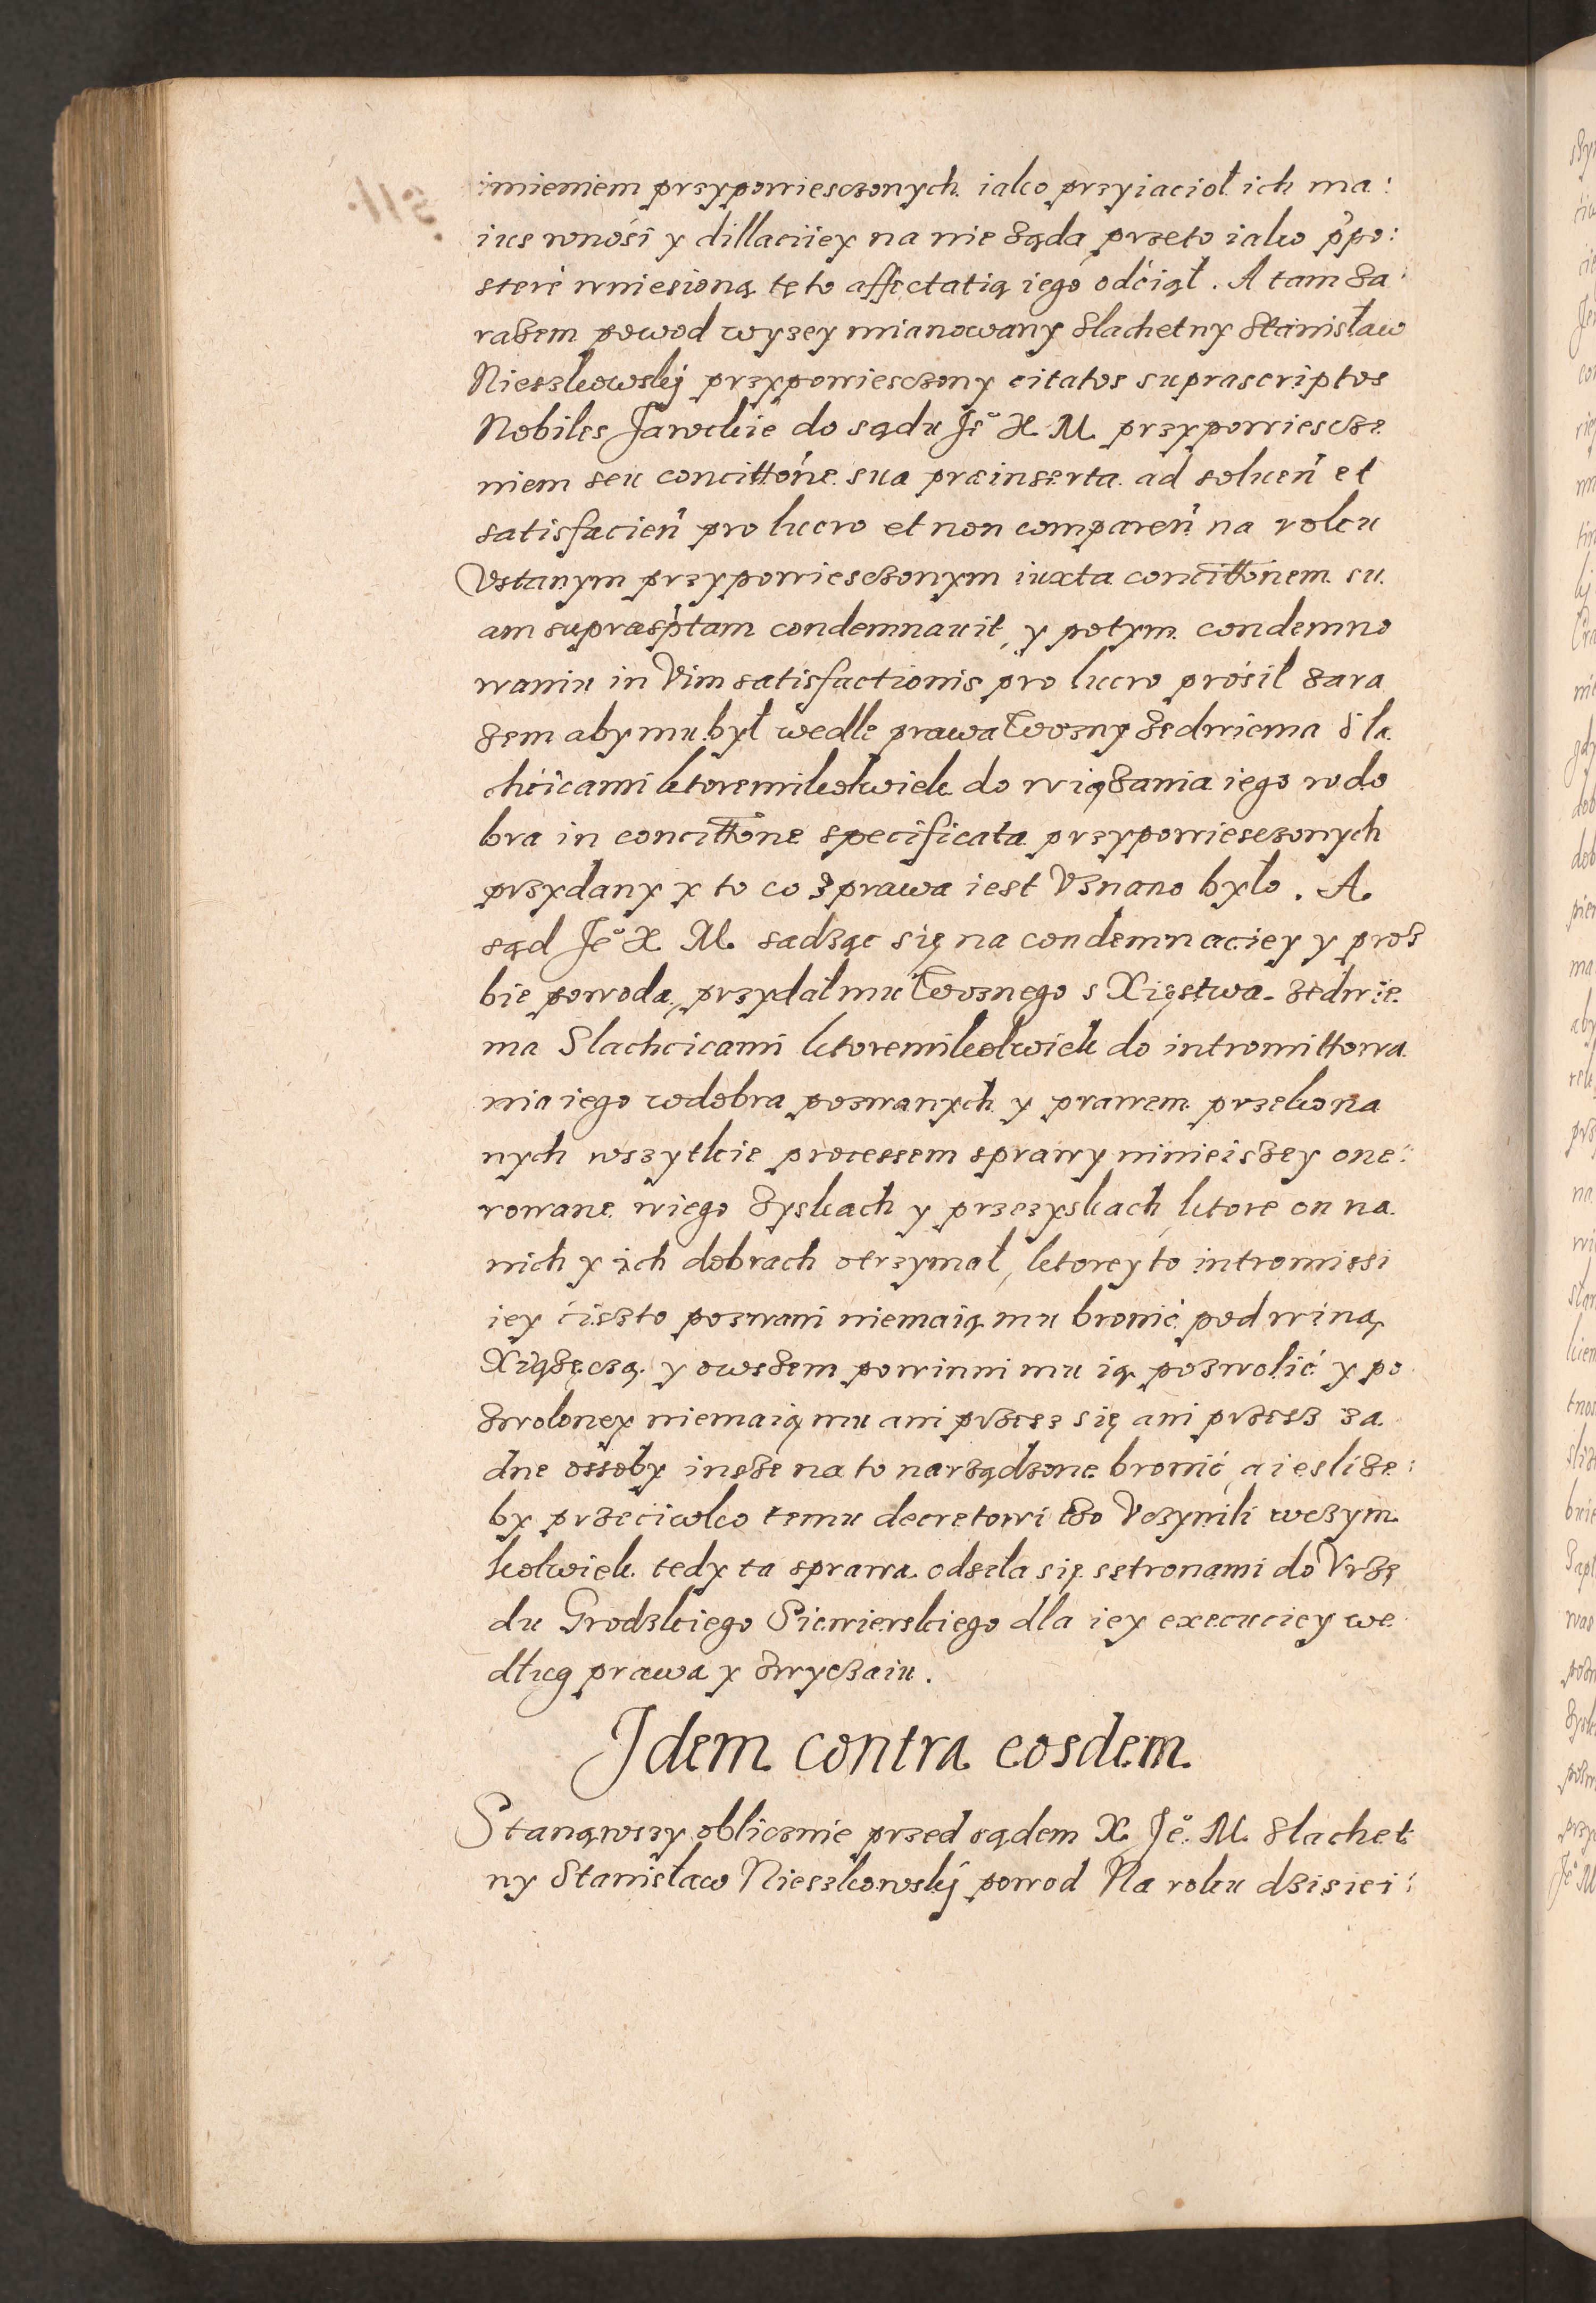 imieniem przypowiesczonych iako przyiacioł ich ma:
ius wnośi y dillaciiey na nie żąda przeto iako ṕpo:
stere wniesioną tęto affectatią iego odciął. A tam za
razem powod wyzey mianowany slachetny Stanisław
Nieszkowskÿ przypowiesczony citatos suprascriptos
Nobiles Jawckie do sądu Je° X. M. przypowiescze
niem seu concittóne sua præinserta ad soluen̄ et
satisfacien̄ pro lucro et non comparen̄ na roku
Vstanym przypowiesczonym iuxta concittōnem su
am supraspt̄am condemnauit, y potym condemno
waniu in Vim satisfactionis pro lucro prosił zara
zem aby mu był wedle prawa Wozny zedwiema sla
chćicami ktoremikolwiek do wiązania iego wdo
bra in concittōne specificata przypowiesczonych
przydany y to co z prawa iest Vznano było. A
sąd Je° X. M. sadząc się na condemnaciey y proz
bie powoda, przydał mu Woznego s Xięstwa zedwie
ma Slachcicami ktoremikolwiek do intromittowa
nia iego wdobra pozwanych y prawem przekona
nych wszytkie processem sprawy ninieiszey one:
rowane wiego zyskach y przezyskach ktore on na
nich y ich dobrach otrzymał, ktorey to intromissi
iey ciszto pozwani niemaią mu bronić pod winą
Xiązęczą y owszem powinni mu ią pozwolić y po
zwoloney niemaią mu ani przesz się ani przesz za
dne ossoby insze na to narządzone bronić, a iesli ze:
by przeciwko temu decretowi czo Vczynili wczym
kolwiek tedy ta sprawa odseła się sstronami do Vrzę
du Grodzkiego Siewierskiego dla iey execuciey we
dług prawa y zwyczaiu.
Idem contra eosdem
Stanąwszy oblicznie przed sądem X. Je°. M. slachet
ny Stanisław Nieszkowskÿ powod Na roku dzisiei: